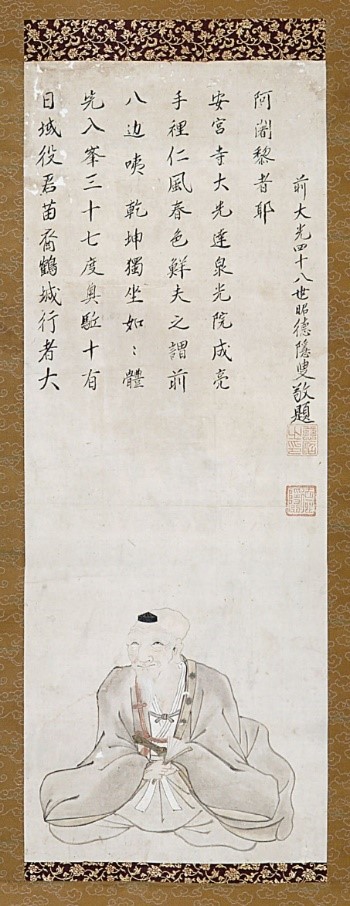 日域役君苗裔鶴城行者大
先入峯三十七度奥駈十有
八边咦乾坤獨坐如〻體
手裡仁風春色鮮夫之謂前
安宮寺大先達泉光院成亮
阿闍黎者耶
前大光四十八世昭德隱叟敬題